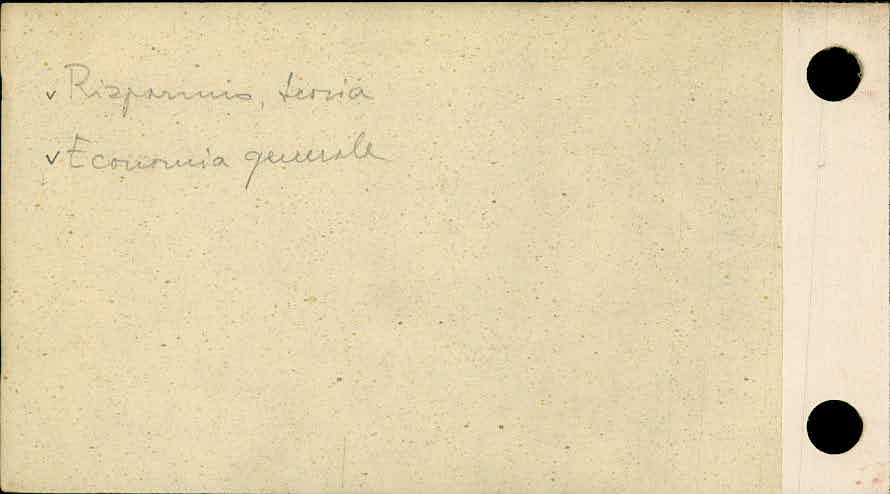 ✓ Risparmio, teoria
✓ Economia generale